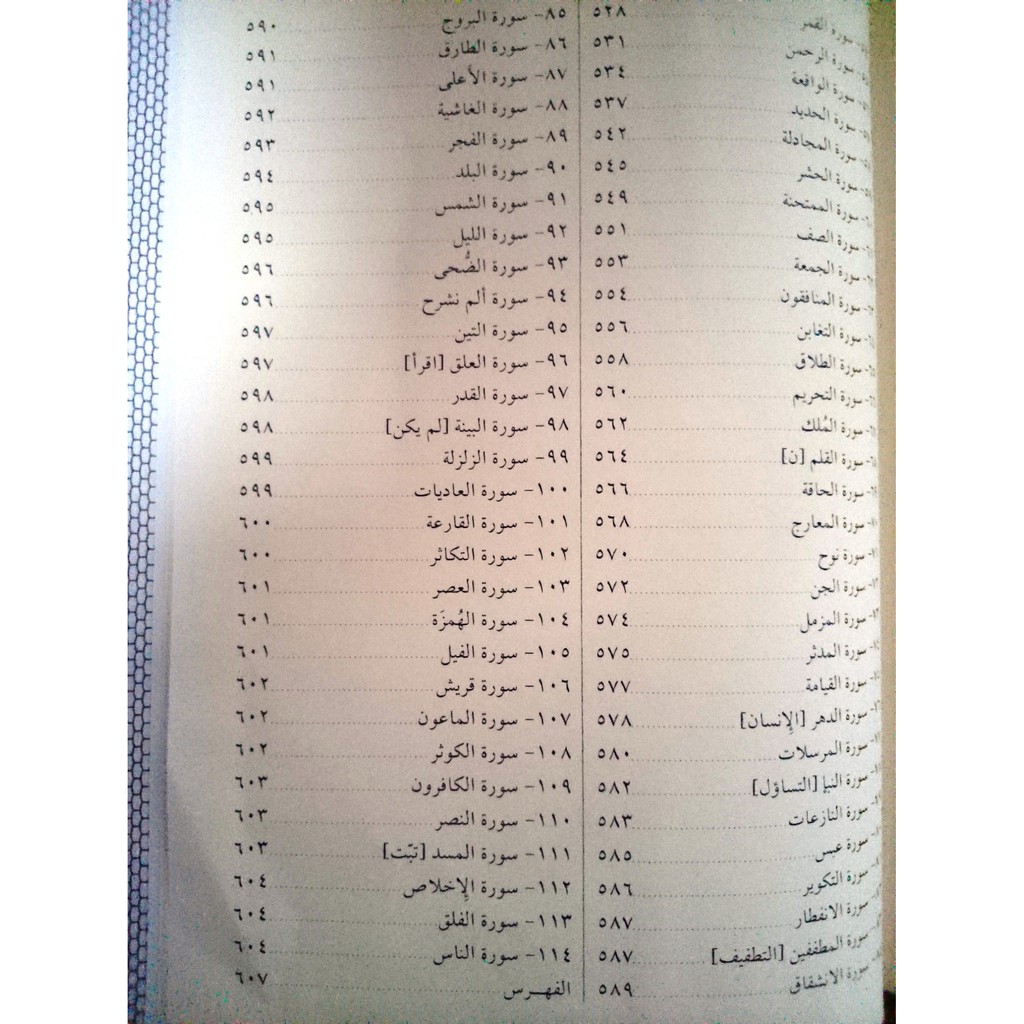 سورة القمر ٥٢٨
سورة الرحمن ٥٣١
سورة الواقعة ٥٣٤
سورة الحديد ٥٣٧
سورة المجادلة ٥٤٢
سورة الحشر ٥٤٥
سورة الممتحنة ٥٤٩
سورة الصف ٥٥١
سورة الجمعة ٥٥٣
سورة المنافقون ٥٥٤
سورة التغابن ٥٥٦
سورة الطلاق ٥٥٨
سورة التحريم ٥٦٠
سورة المُلك ٥٦٢
سورة القلم [ن] ٥٦٤
سورة الحاقة ٥٦٦
سورة المعارج ٥٦٨
سورة نوح ٥٧٠
سورة الجن ٥٧٢
سورة المزمل ٥٧٤
سورة المدثر ٥٧٥
سورة القيامة ٥٧٧
سورة الدهر [الإنسان] ٥٧٨
سورة المرسلات ٥٨٠
سورة النبإ [التساؤل] ٥٨٢
سورة النازعات ٥٨٣
سورة عبس ٥٨٥
سورة التكوير ٥٨٦
سورة الانفطار ٥٨٧
سورة المطففين [التطفيف] ٥٨٧
سورة الانشقاق ٥٨٩
٨٥- سورة البروج ٥٩٠
٨٦- سورة الطارق ٥٩١
٨٧- سورة الأعلى ٥٩١
٨٨- سورة الغاشية ٥٩٢
٨٩- سورة الفجر ٥٩٣
٩٠- سورة البلد ٥٩٤
٩١- سورة الشمس ٥٩٥
٩٢- سورة الليل ٥٩٥
٩٣- سورة الضُّحى ٥٩٦
٩٤- سورة ألم نشرح ٥٩٦
٩٥- سورة التين ٥٩٧
٩٦- سورة العلق [اقرأ] ٥٩٧
٩٧- سورة القدر ٥٩٨
٩٨- سورة البينة [لم يكن] ٥٩٨
٩٩- سورة الزلزلة ٥٩٩
١٠٠- سورة العاديات ٥٩٩
١٠١- سورة القارعة ٦٠٠
١٠٢- سورة التكاثر ٦٠٠
١٠٣- سورة العصر ٦٠١
١٠٤- سورة الهُمزَة ٦٠١
١٠٥- سورة الفيل ٦٠١
١٠٦- سورة قريش ٦٠٢
١٠٧- سورة الماعون ٦٠٢
١٠٨- سورة الكوثر ٦٠٢
١٠٩- سورة الكافرون ٦٠٣
١١٠- سورة النصر ٦٠٣
١١١- سورة المسد [تبّت] ٦٠٣
١١٢- سورة الإخلاص ٦٠٤
١١٣- سورة الفلق ٦٠٤
١١٤- سورة الناس ٦٠٤
الفهرس ٦٠٧